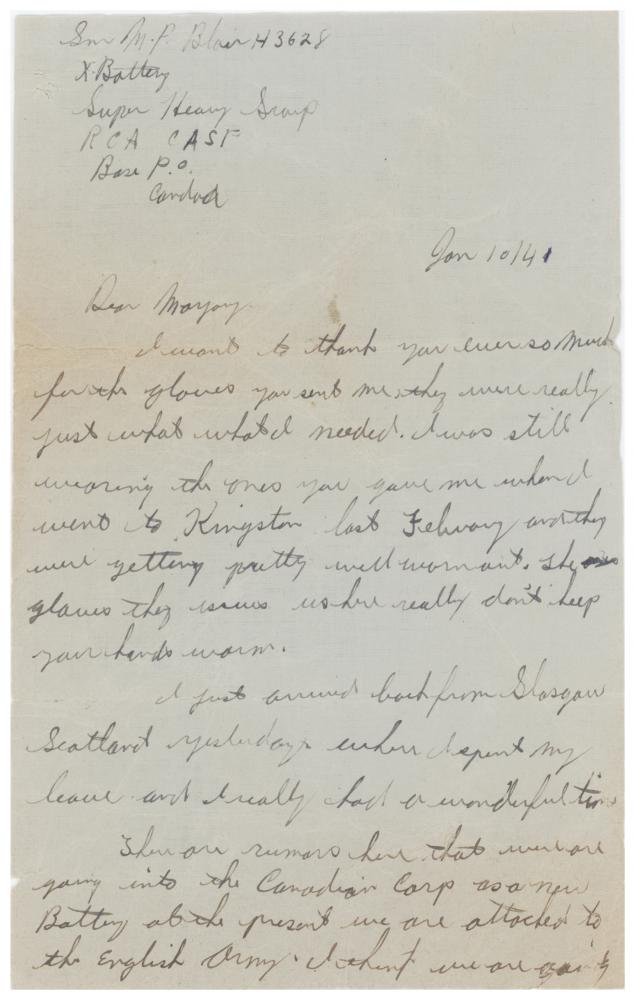 Gnr M.P. Blair H3628
X Battery
Super Heavy Group
RCA CASF
Base P.O.
Canada
Jan 10/41
Dear
I want to thank you ever so much
for the gloves you sent me, they were really
just what what I needed. I was still
wearing the ones you gave me when I
went to Kingston last Febuary and they
were getting pretty well worn out. The
gloves they issues us here really don't keep
your hands warm.
I just arrived back from Glasgow
Scotland yesterday where I spent my
leave and I really had a wonderful time
There are rumors here that we are
going into the Canadian Corp as a new
Battery at the present we are attached to
the English Army. I think we are going